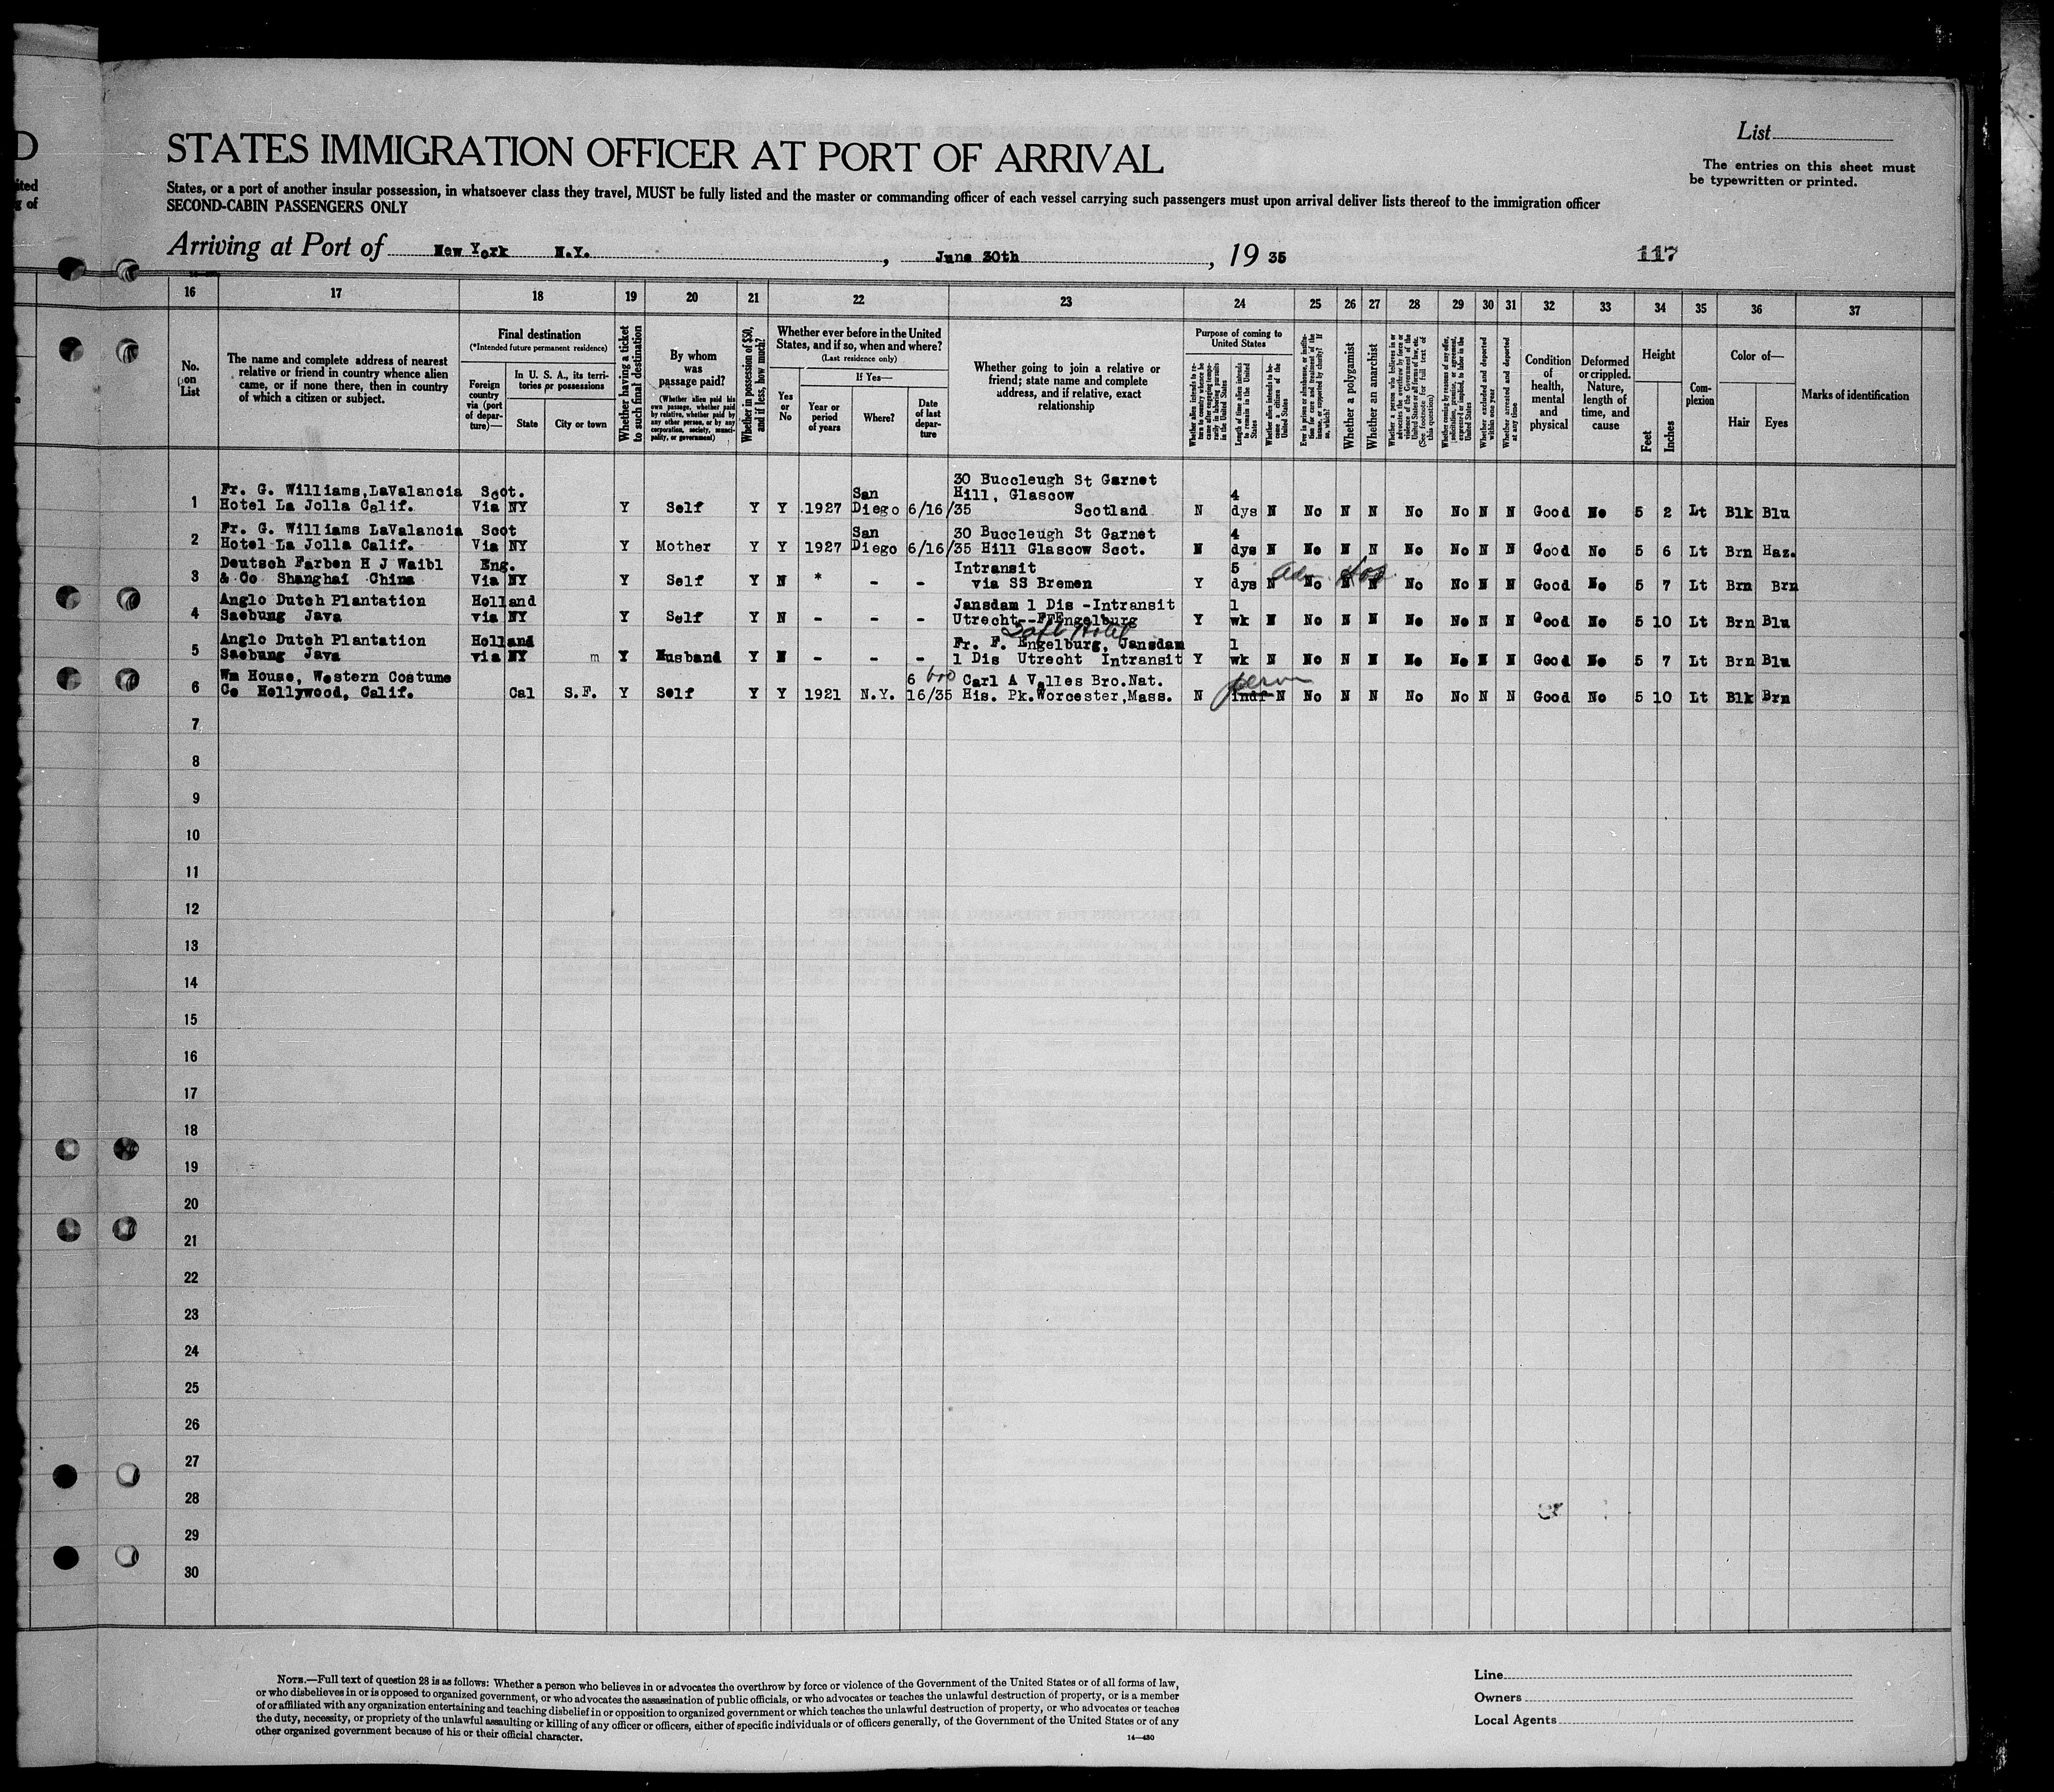 D
ited
g of
List
The entries on this sheet must
be typewritten or printed.
STATES IMMIGRATION OFFICER AT PORT OF ARRIVAL
States, or a port of another insular possession, in whatsoever class they travel, MUST be fully listed and the master or commanding officer of each vessel carrying such passengers must upon arrival deliver lists thereof to the immigration officer
SECOND-CABIN PASSENGERS ONLY
Arriving at Port of New York N.Y. , June 30th , 19 35 117
16 17 18 19 20 21 22 23 24 25 26 27 28 29 30 31 32 33 34 35 36 37
No. on List
The name and complete address of nearest
relative or friend in country whence alien
came, or if none there, then in country
of which a citizen or subject.
Final destination
(*Intended future permanent residence)
Foreign country via (port of departure)—
In U. S. A., its territories or possessions
State
City or town
Whether having a ticket to such final destination
By whom was passage paid?
(Whether alien paid his own passage, whether paid by relative, whether paid by any other person, or by any corporation, society, municipality, or government)
Whether in possession of $50, and if less, how much?
Whether ever before in the United
States, and if so, when and where?
(Last residence only)
Yes or No
If Yes—
Year or period of years
Where?
Date of last departure
Whether going to join a relative or
friend; state name and complete
address, and if relative, exact
relationship
Purpose of coming to United States
Whether alien intends to return to country whence he came after engaging temporarily in laboring pursuits in the United States
Length of time alien intends to remain in the United States
Whether alien intends to become a citizen of the United States
Ever in prison or almshouse or institution for care and treatment of the insane, or supported by charity? If so, which?
Whether a polygamist
Whether an anarchist
Whether a person who believes in or advocates the overthrow by force or violence of the Government of the United States or all forms of law, etc. (See footnote for full text of this question)
Whether coming by reason of any offer, solicitation, promise, or agreement, expressed or implied, to labor in the United States
Whether excluded and deported within one year
Whether arrested and deported at any time
Condition of health, mental and physical
Deformed or crippled. Nature, length of time, and cause
Height
Feet
Inches
Complexion
Color of—
Hair
Eyes
Marks of identification
1 Fr. G. Williams,LaValancia Hotel La Jolla Calif. Scot. Via NY Y Self Y Y 1927 San Diego 6/16/35 30 Buccleugh St Garnet Hill, Glascow Scotland N 4 dys N No N N No No N N Good No 5 2 Lt Blk Blu
2 Fr. G. Williams LaValancia Hotel La Jolla Calif. Scot Via NY Y Mother Y Y 1927 San Diego 6/16/35 30 Buccleugh St Garnet Hill Glascow Scot. N 4 dys N No N N No No N N Good No 5 6 Lt Brn Haz.
3 Deutsch Farben H J Waibl & Co Shanghai China Eng. Via NY Y Self Y N * - - Intransit via SS Bremen Y 5 dys N No N N No No N N Good No 5 7 Lt Brn Brn
4 Anglo Dutch Plantation Saebung Java Holland via NY Y Self Y N - - - Jansdam 1 Dis -Intransit Utrecht--FFEngelburg Y 1 wk N No N N No No N N Good No 5 10 Lt Brn Blu
Taft Hotel
5 Anglo Dutch Plantation Saebung Java Holland via NY m Y Husband Y N - - - Fr. F. Engelburg, Jansdam 1 Dis Utrecht Intransit Y 1 wk N No N N No No N N Good No 5 7 Lt Brn Blu
6 Wm House, Western Costume Co Hollywood, Calif. Cal S.F. Y Self Y Y 1921 N.Y. 6 16/35 bro Carl A Valles Bro.Nat. His. Pk.Worcester,Mass. N perm indf N No N N No No N N Good No 5 10 Lt Blk Brn
7
8
9
10
11
12
13
14
15
16
17
18
19
20
21
22
23
24
25
26
27
28
29
30
NOTE.—Full text of question 28 is as follows: Whether a person who believes in or advocates the overthrow by force or violence of the Government of the United States or of all forms of law,
or who disbelieves in or is opposed to organized government, or who advocates the assassination of public officials, or who advocates or teaches the unlawful destruction of property, or is a member
of or affiliated with any organization entertaining and teaching disbelief in or opposition to organized government or which teaches the unlawful destruction of property, or who advocates or teaches
the duty, necessity, or propriety of the unlawful assaulting or killing of any officer or officers, either of specific individuals or of officers generally, of the Government of the United States or of any
other organized government because of his or their official character.
14—430
Line
Owners
Local Agents